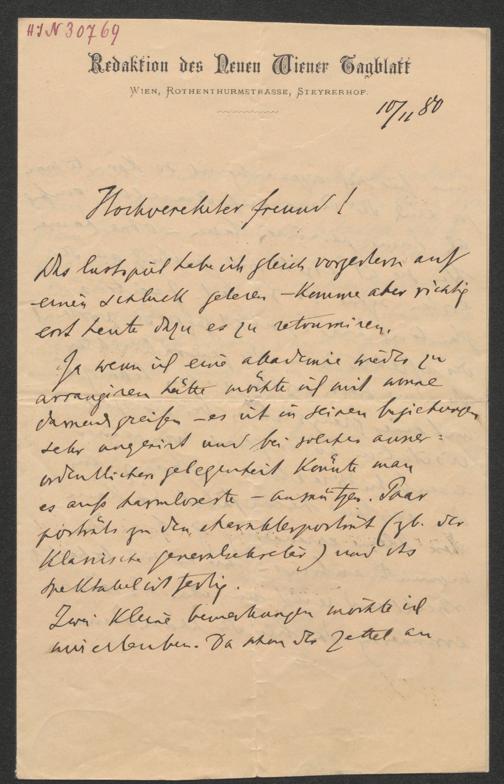 HIN 30769
Redaktion des Neuen Wiener Tagblatt
WIEN, ROTHENTHURMSTRASSE, STEYRERHOF.
10/11 80
Hochverehrter Freund!
Das Lustspiel habe ich gleich vorgestern auf
einen Schluck gelesen – komme aber richtig
erst heute dazu es zu retourniren.
Ja wenn ich eine Akademie wieder zu
arrangiren hätte möchte ich mit Wonne
darnach greifen – es ist in seinen Beziehungen
sehr und bei solcher ausser=
ordentlichen Gelegenheit könnte man
es aufs harmloseste – ausnützen. Paar
porträts zu den (zb. der
klassische Generalsekretär) und das
Spektakel ist fertig.
Zwei kleine Bemerkungen möchte ich
mir erlauben. Da man der Zettel an